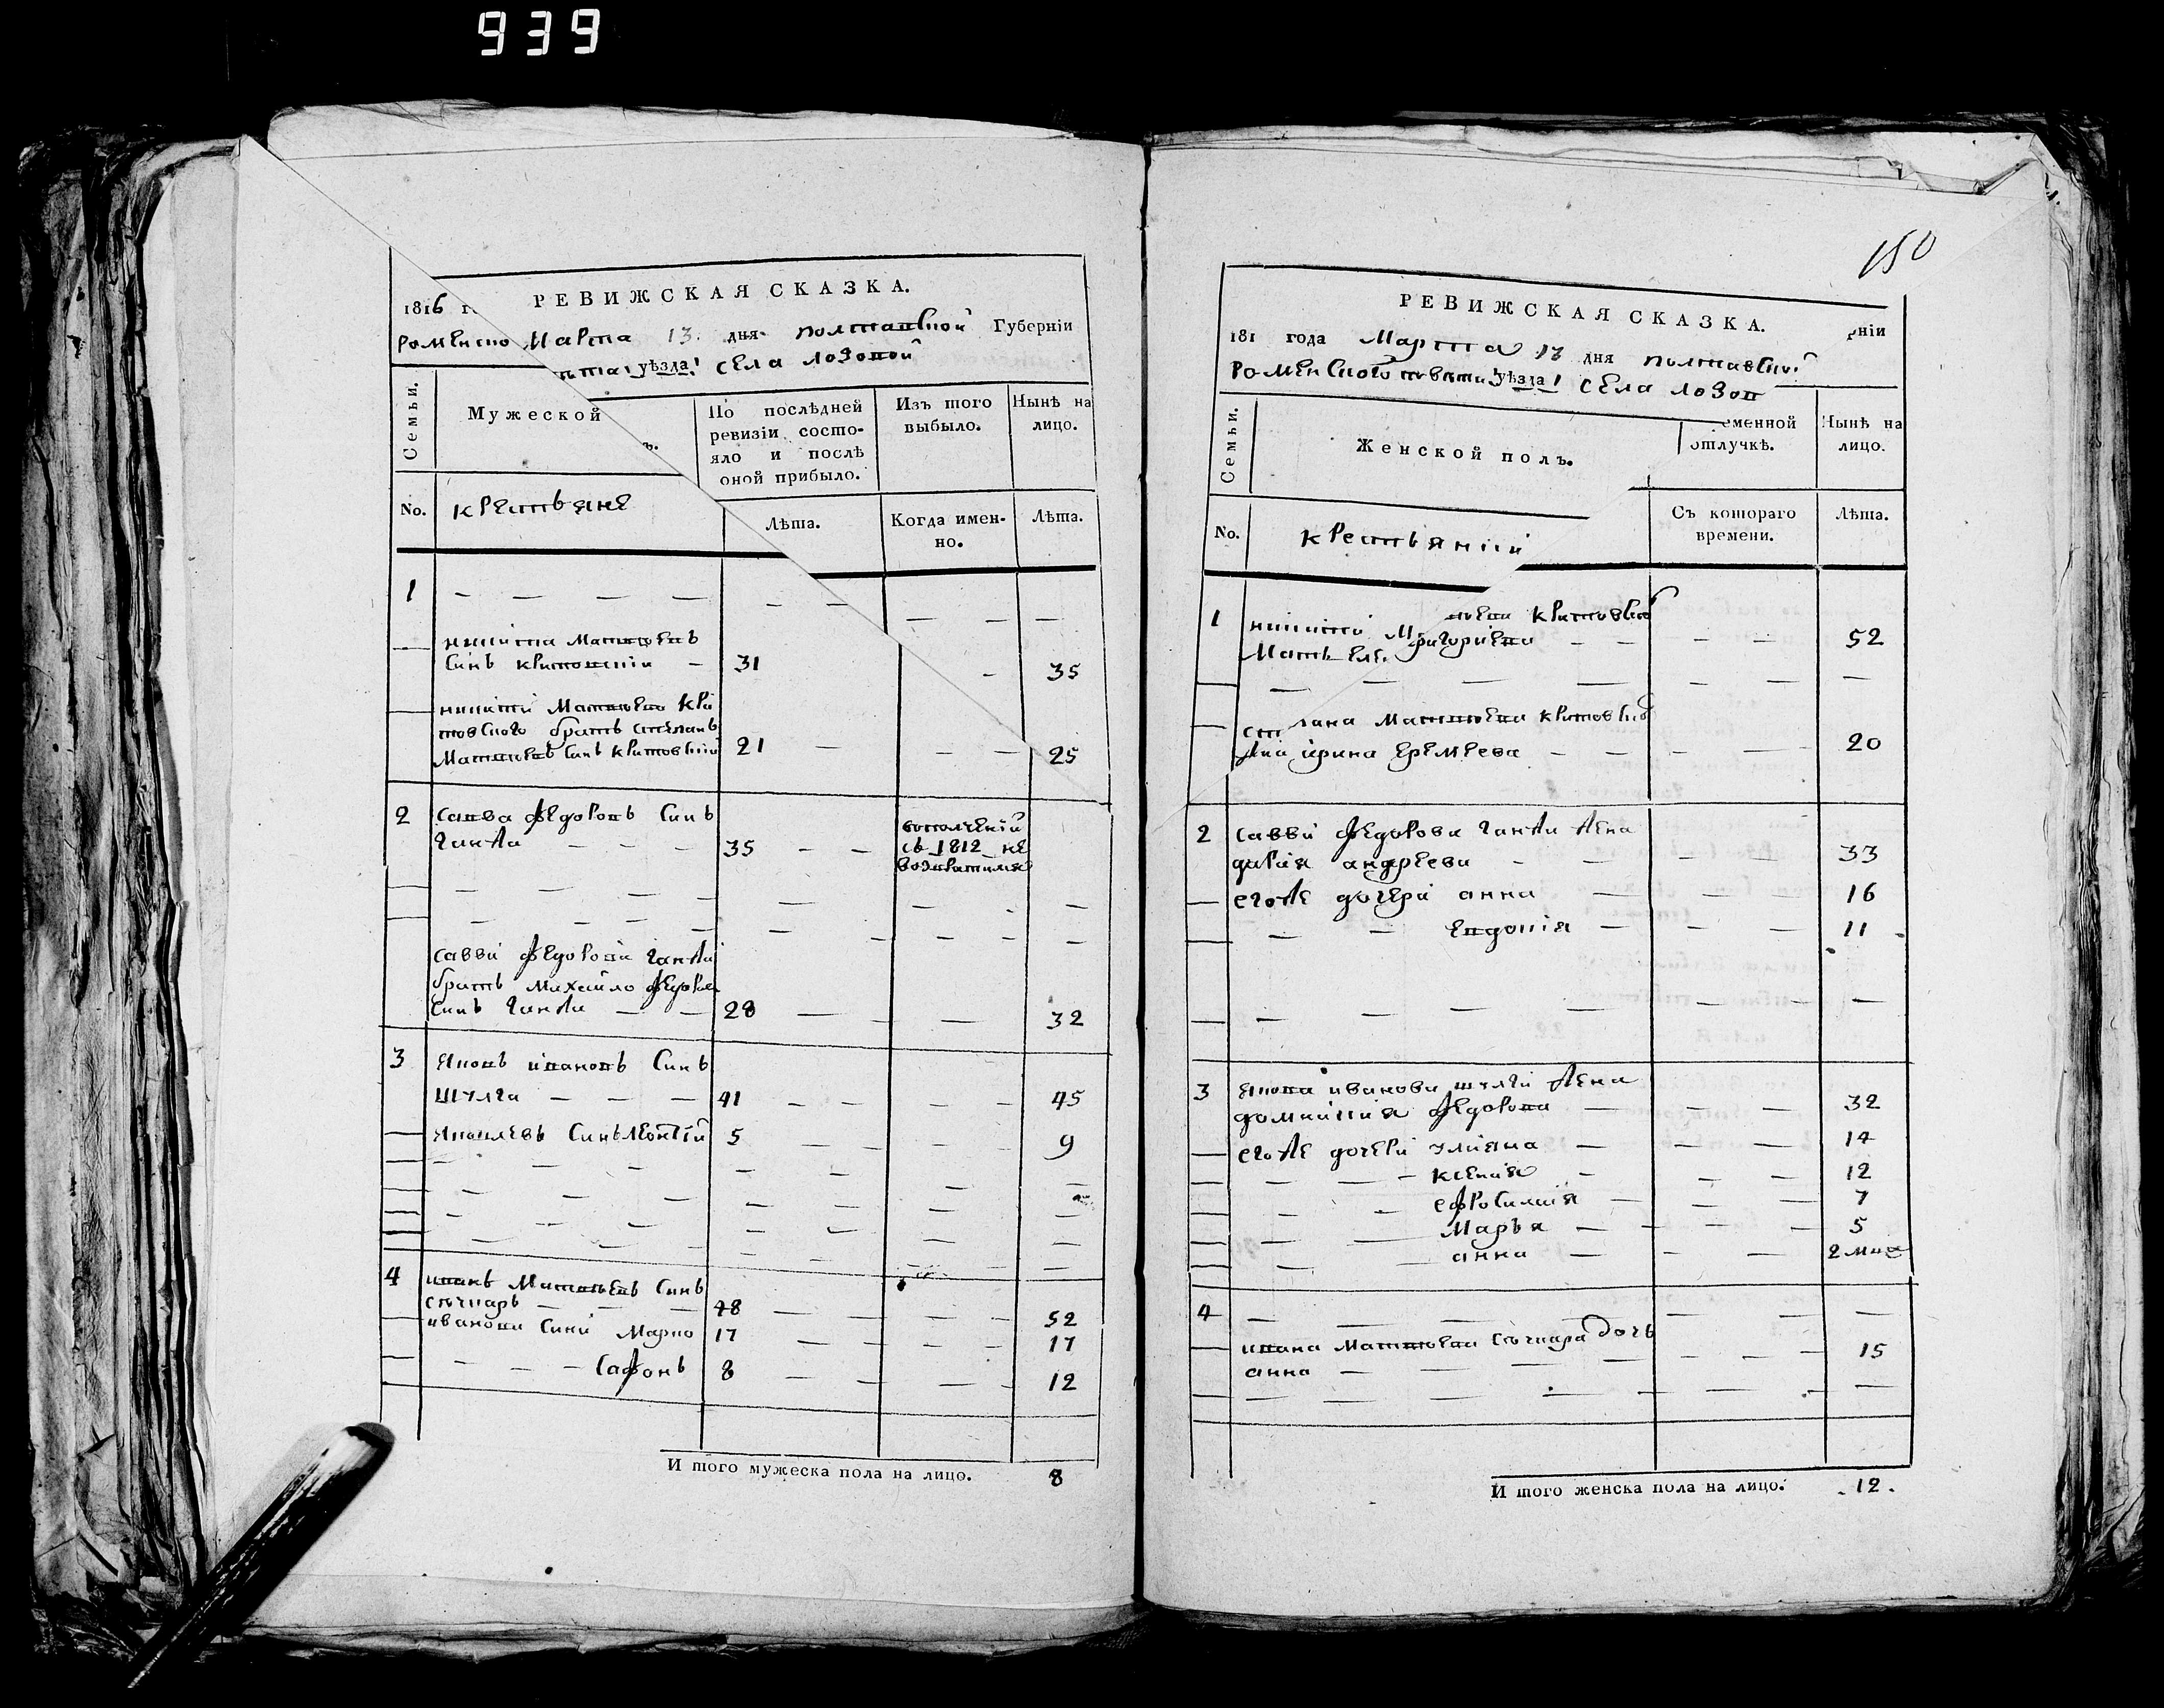 939
РЕВИЖСКАЯ СКАЗКА.
1816 го
Марта 13. дня полтавской Губерніи
роменско
ѣта уѣзда! села лозовой
Семьи.
Мужеской
ъ.
По послѣдней ревизіи состо-
яло и послѣ
оной прибыло.
Изъ того
выбыло.
Нынѣ на
лицо.
No.
крестьяне
Лѣта.
Когда имен-
но.
Лѣта.
1
никита Матвѣевъ
синъ критовскій 31 35
никити Матвѣева кри
товского братъ степанъ
Матвѣевъ синъ критовскій 21 25
2 савва федоровъ синъ
ганжа 35
вополченіи
съ 1812 не
возвратился
савви федорови ганжи
братъ михайло федоров
синъ ганжа 28 32
3 яковъ ивановъ синъ
шулга 41 45
яковлевъ синъ леонтій 5 9
4 иванъ Матвѣевъ синъ
сѣчкарь 48 52
иванови сини Марко 17 17
сафонъ 8 12
И того мужеска пола на лицо. 8
150
РЕВИЖСКАЯ СКАЗКА.
181 года Марта 13 дня полтавской
рніи
роменского повѣта уѣзда! села лозов
Семьи.
Женской полъ.
еменной
отлучкѣ.
Нынѣ на
лицо.
No.
крестьянкй
Съ котораго
времени.
Лѣта.
1 никити М вѣева критовско
Мать еле ригориева 52
ст пана Матвѣева критовско
жена ирина еремѣева 20
2 савви федорова ганжи жена
дария андреева 33
егоже дочери анна 16
евдокия 11
3 якова иванова шулги жена
домникия федорова 32
егоже дочери улияна 14
ксения 12
ефросиния 7
Марья 5
анна 2 мца
4
ивана Матвѣева сѣчкара дочь
анна 15
И того женска пола на лицо. 12.